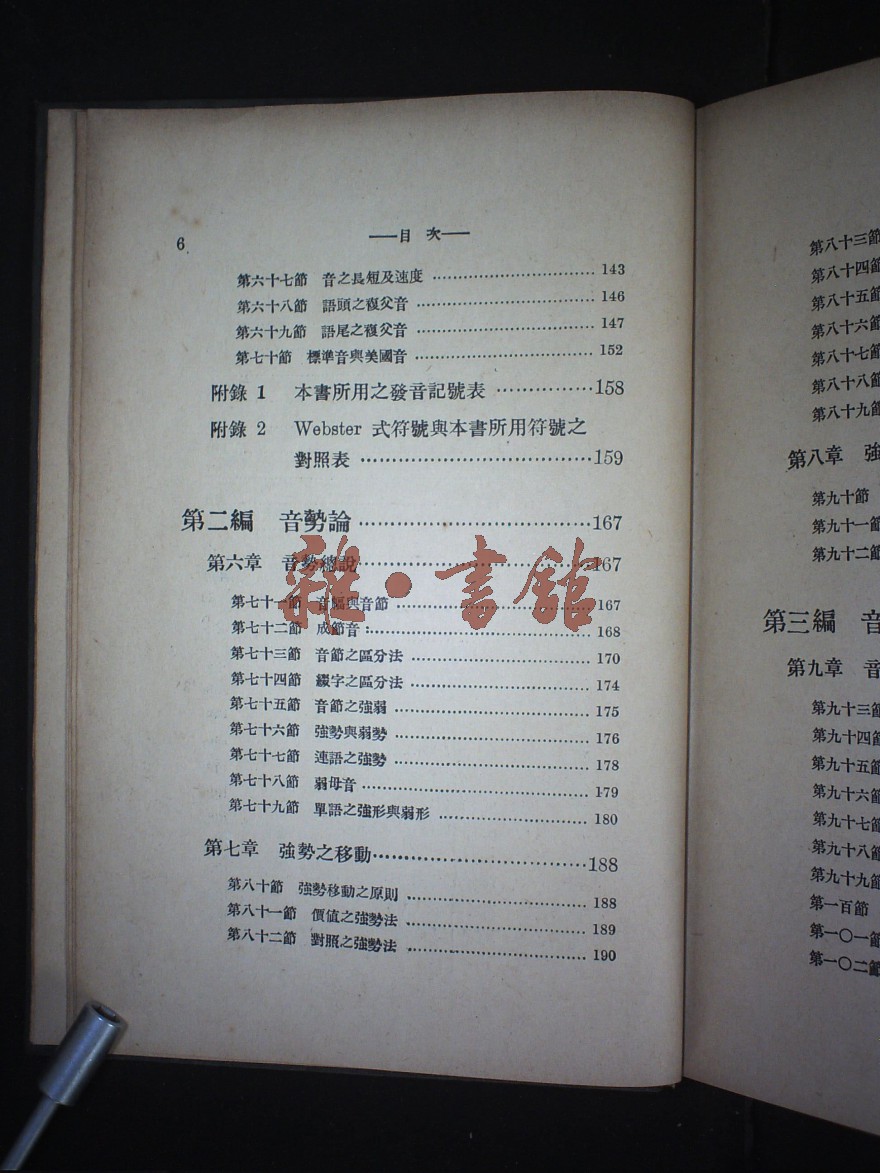 6
——目 次——
第六十七節 音之長短及速度 143
第六十八節 語頭之複父音 146
第六十九節 語尾之複父音 147
第七十節 標準音與美國音 152
附錄 1 本書所用之發音記號表 158
附錄 2 Webster 式符號與本書所用符號之
對照表 159
第二編 音勢論 167
第六章 音勢總說 167
第七十一節 音屬與音節 167
第七十二節 成節音 168
第七十三節 音節之區分法 170
第七十四節 綴字之區分法 174
第七十五節 音節之強弱 175
第七十六節 強勢與弱勢 176
第七十七節 連語之強勢 178
第七十八節 弱母音 179
第七十九節 單語之強形與弱形 180
第七章 強勢之移動 188
第八十節 強勢移動之原則 188
第八十一節 價値之強勢法 189
第八十二節 對照之強勢法 190
雜·書館
第八十三節
第八十四節
第八十五節
第八十六節
第八十七節
第八十八節
第八十九節
第八章 強
第九十節
第九十一節
第九十二節
第三編 音
第九章 音
第九十三節
第九十四節
第九十五節
第九十六節
第九十七節
第九十八節
第九十九節
第一百節
第一〇一節
第一〇二節